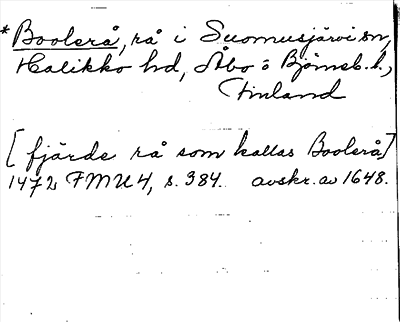 * Boolsrå, rå i Suomusjärvi sn,
Halikko hd, Åbo o Björneb. l.,
Finland
[fjärde rå som kallas Boolsrå]
1472 FMU 4, s. 384. avskr. av 1648.